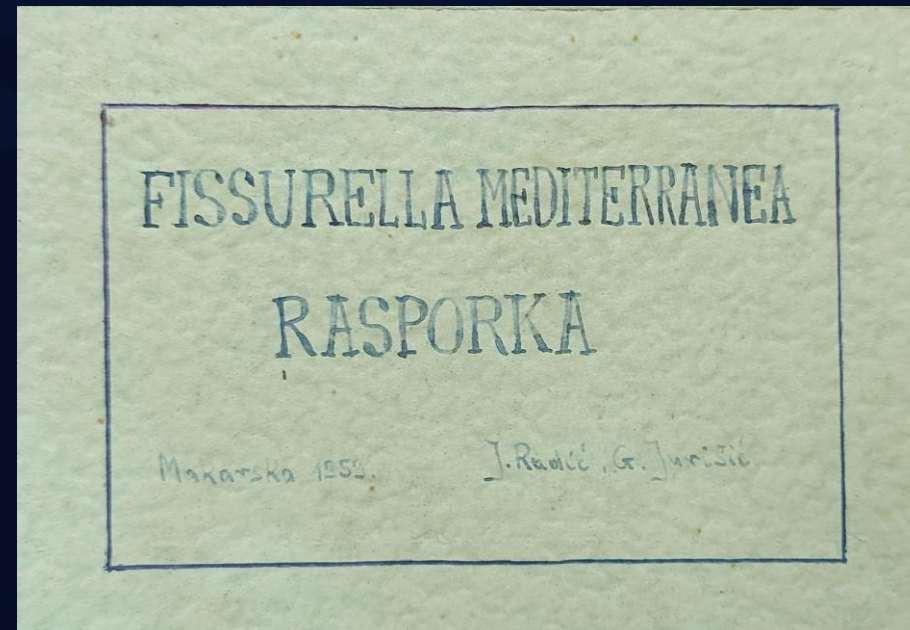 FISSURELLA MEDITERRANEA
RASPORKA
Makarska 1952. J. Radić, G. Jurišić